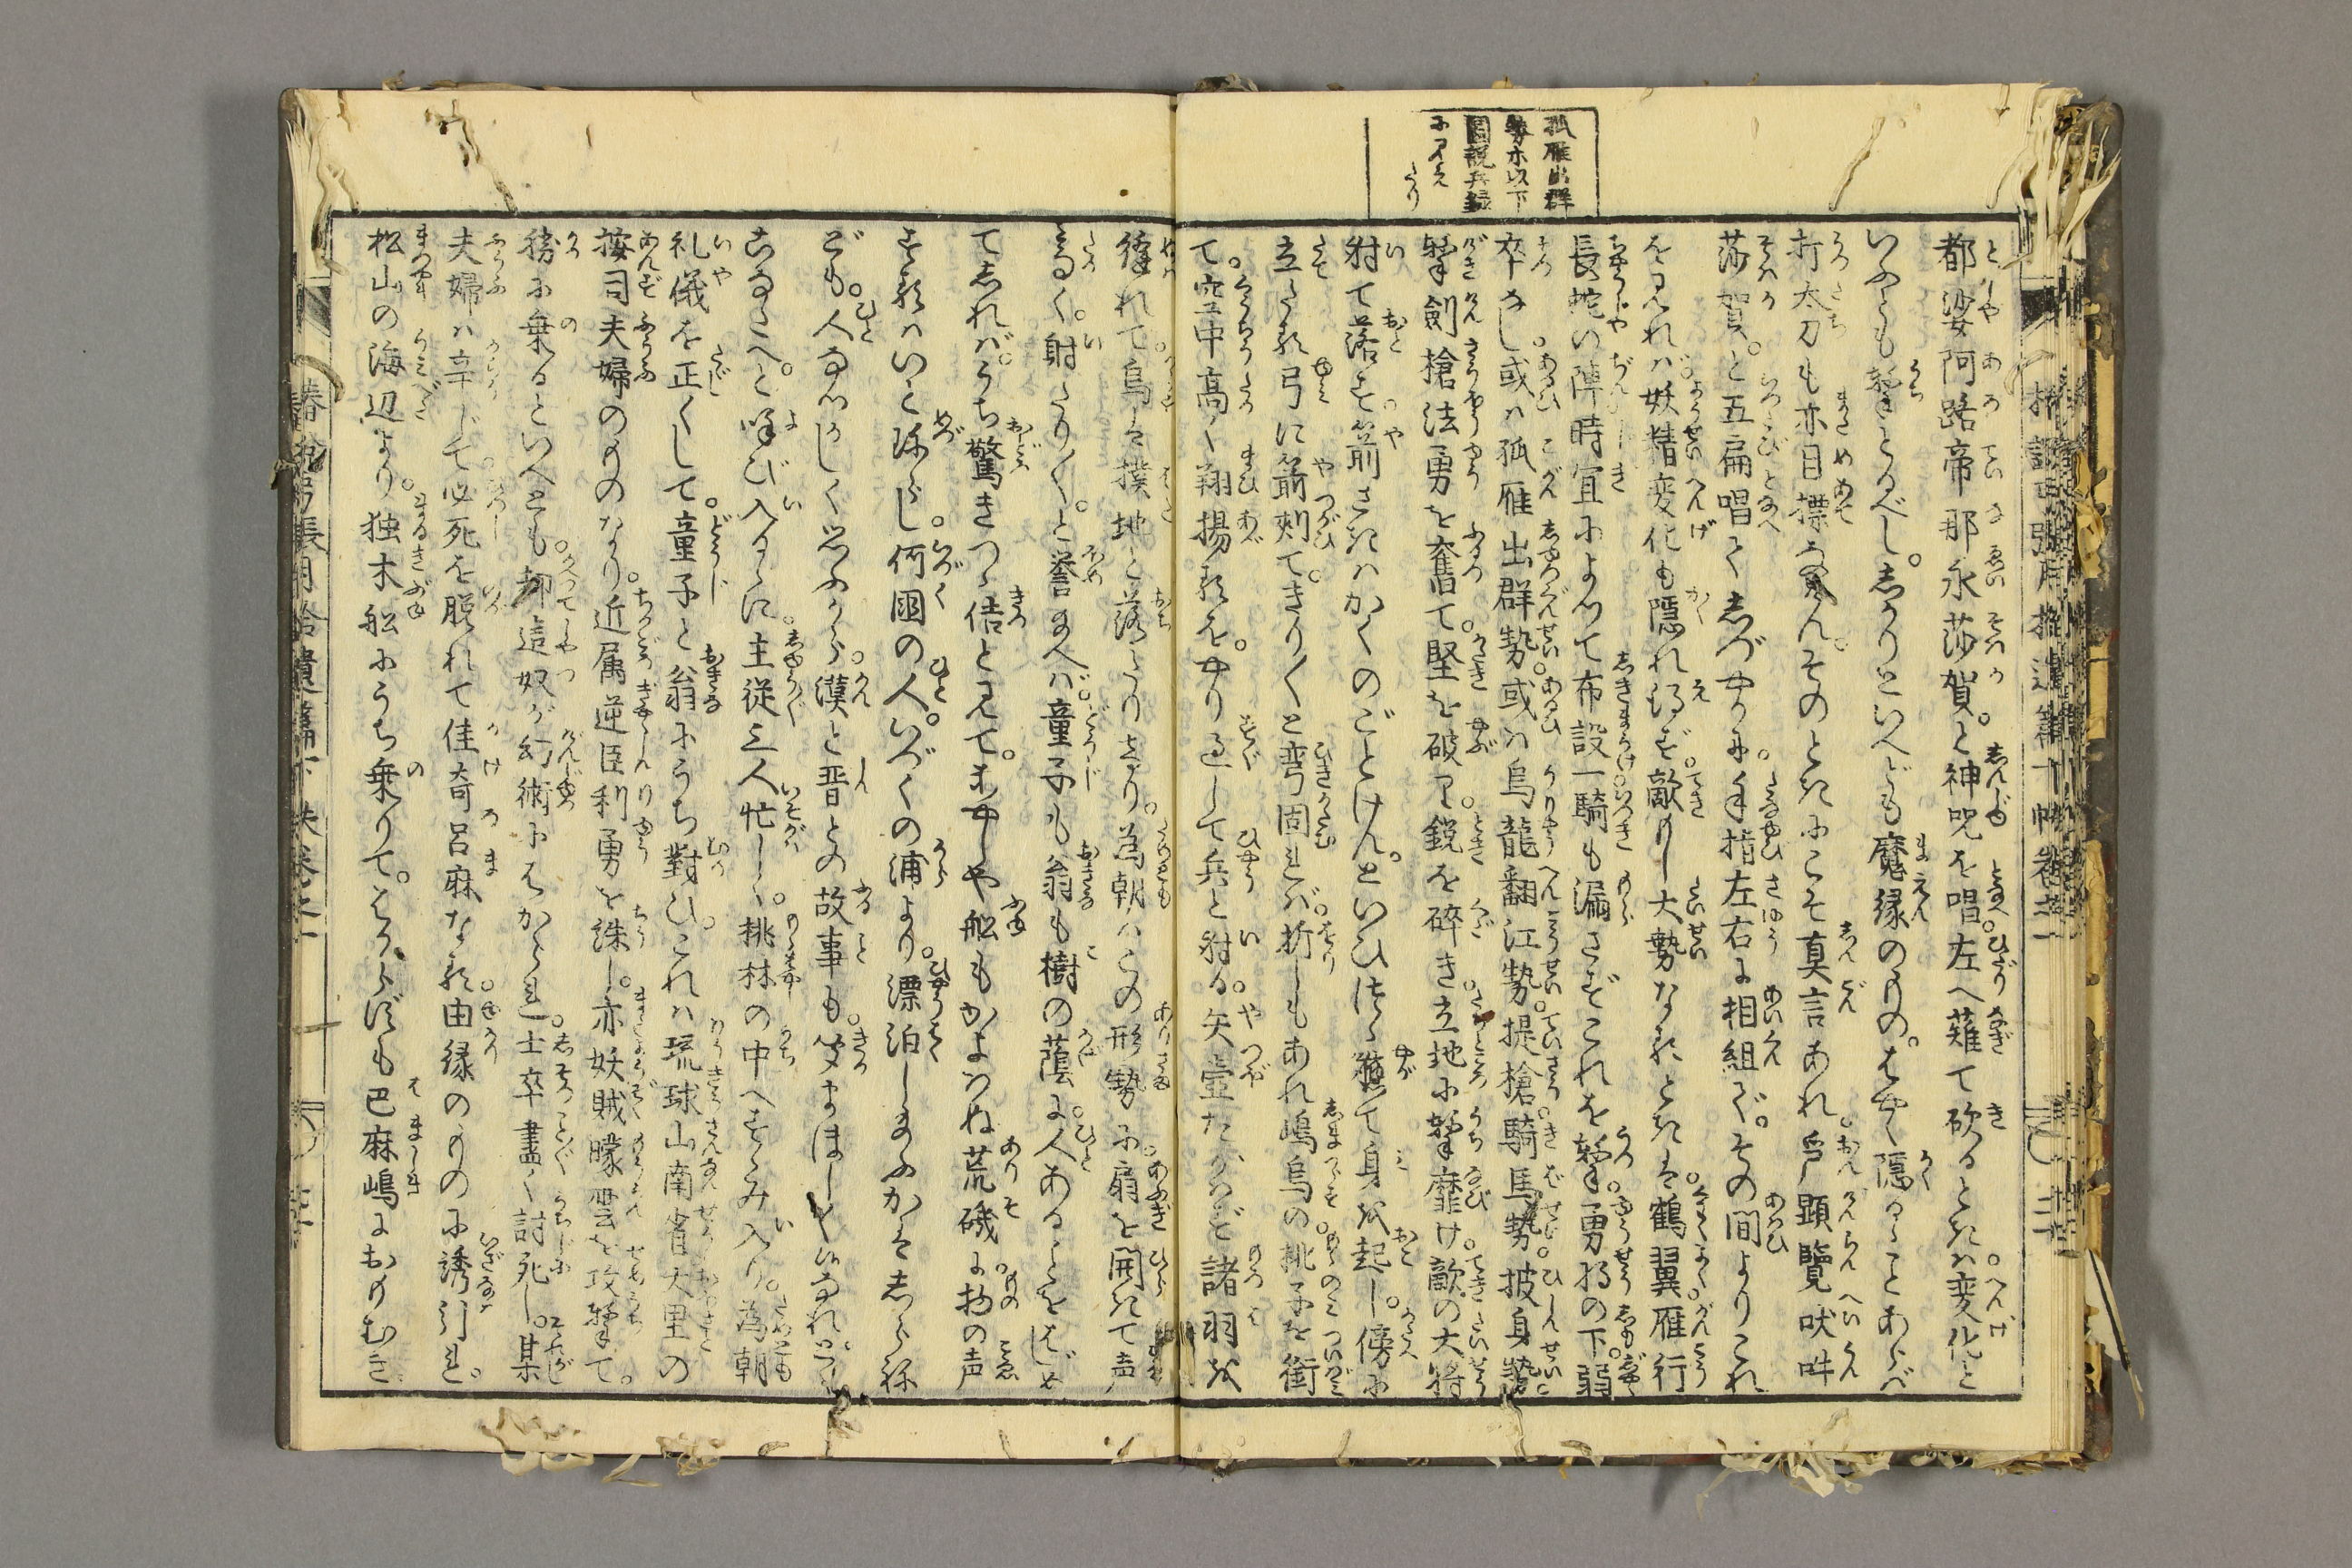 孤雁出群
勢ホ以下
圖説兵録
に見え
たり
都娑阿路帝那永莎賀。と神呪を唱。左へ薙て砍るときハ。変化と
いふとも撃とるべし。しかりといへども魔縁のもの。はやく隠るゝことあらバ
打太刀も亦目標なからん。そのときにこそ真言あれ。
莎賀。と五扁唱て。しづやかに。手指左右に相組ぐ。その間よりこれ
を見れバ。妖精変化も隠れ得ず。敵もし大勢なるときは。鶴翼雁行
長蛇の陣時宜によつて布設一騎も漏さずこれを撃。勇将の下。弱
卒なし。或ハ孤雁出群勢。或ハ烏龍翻江勢。提槍騎馬勢。披身勢。
撃劍槍法勇を奮て。堅を破り。鋭を碎き。立地に撃靡け。敵の大将
射て落す。箭さきハかくのごとけん。といひつゝ軈て身を起し。傍に
立たる弓に箭刺て。きり〳〵と弯固れバ。折しもあれ嶋烏の。桃子を銜
て。空中高く翔揚るを。やり過して兵と射る。矢壺たがハず諸羽を
縫れて。烏は撲地と落たりける。為朝ハこの形勢に。扇を開きて声
たかく。射たり〳〵。と誉給へバ。童子も翁も樹の蔭に。人あることをはじめ
てしれバ。うち驚きつゝ佶と見て。まだしや船もかよハぬ荒礒に。物の声
するハいと珎らし。何國の人。いづくの浦より。漂泊し給ふかはしらね
ども。人なつかしく思ふから。漢と晋との故事も。聞まほしく候なれ。
こなたへ。と呼び入るゝに。主従三人忙しく。桃林の中へすゝみ入り。為朝
礼儀を正くして。童子と翁にうち對ひ。これハ琉球山南省大里の
按司夫婦のものなり。近属逆臣利勇を誅し。亦妖賊曚雲を攻撃て。
勝に乗るといへども。却這奴が幻術にはかられ。士卒盡く討死し。某
夫婦ハ辛じて。必死を脱れて佳奇呂麻なる。由縁のものに誘引れ。
松山の海辺より。独木舩にうち乗りて。はからずも巴麻嶋におもむき